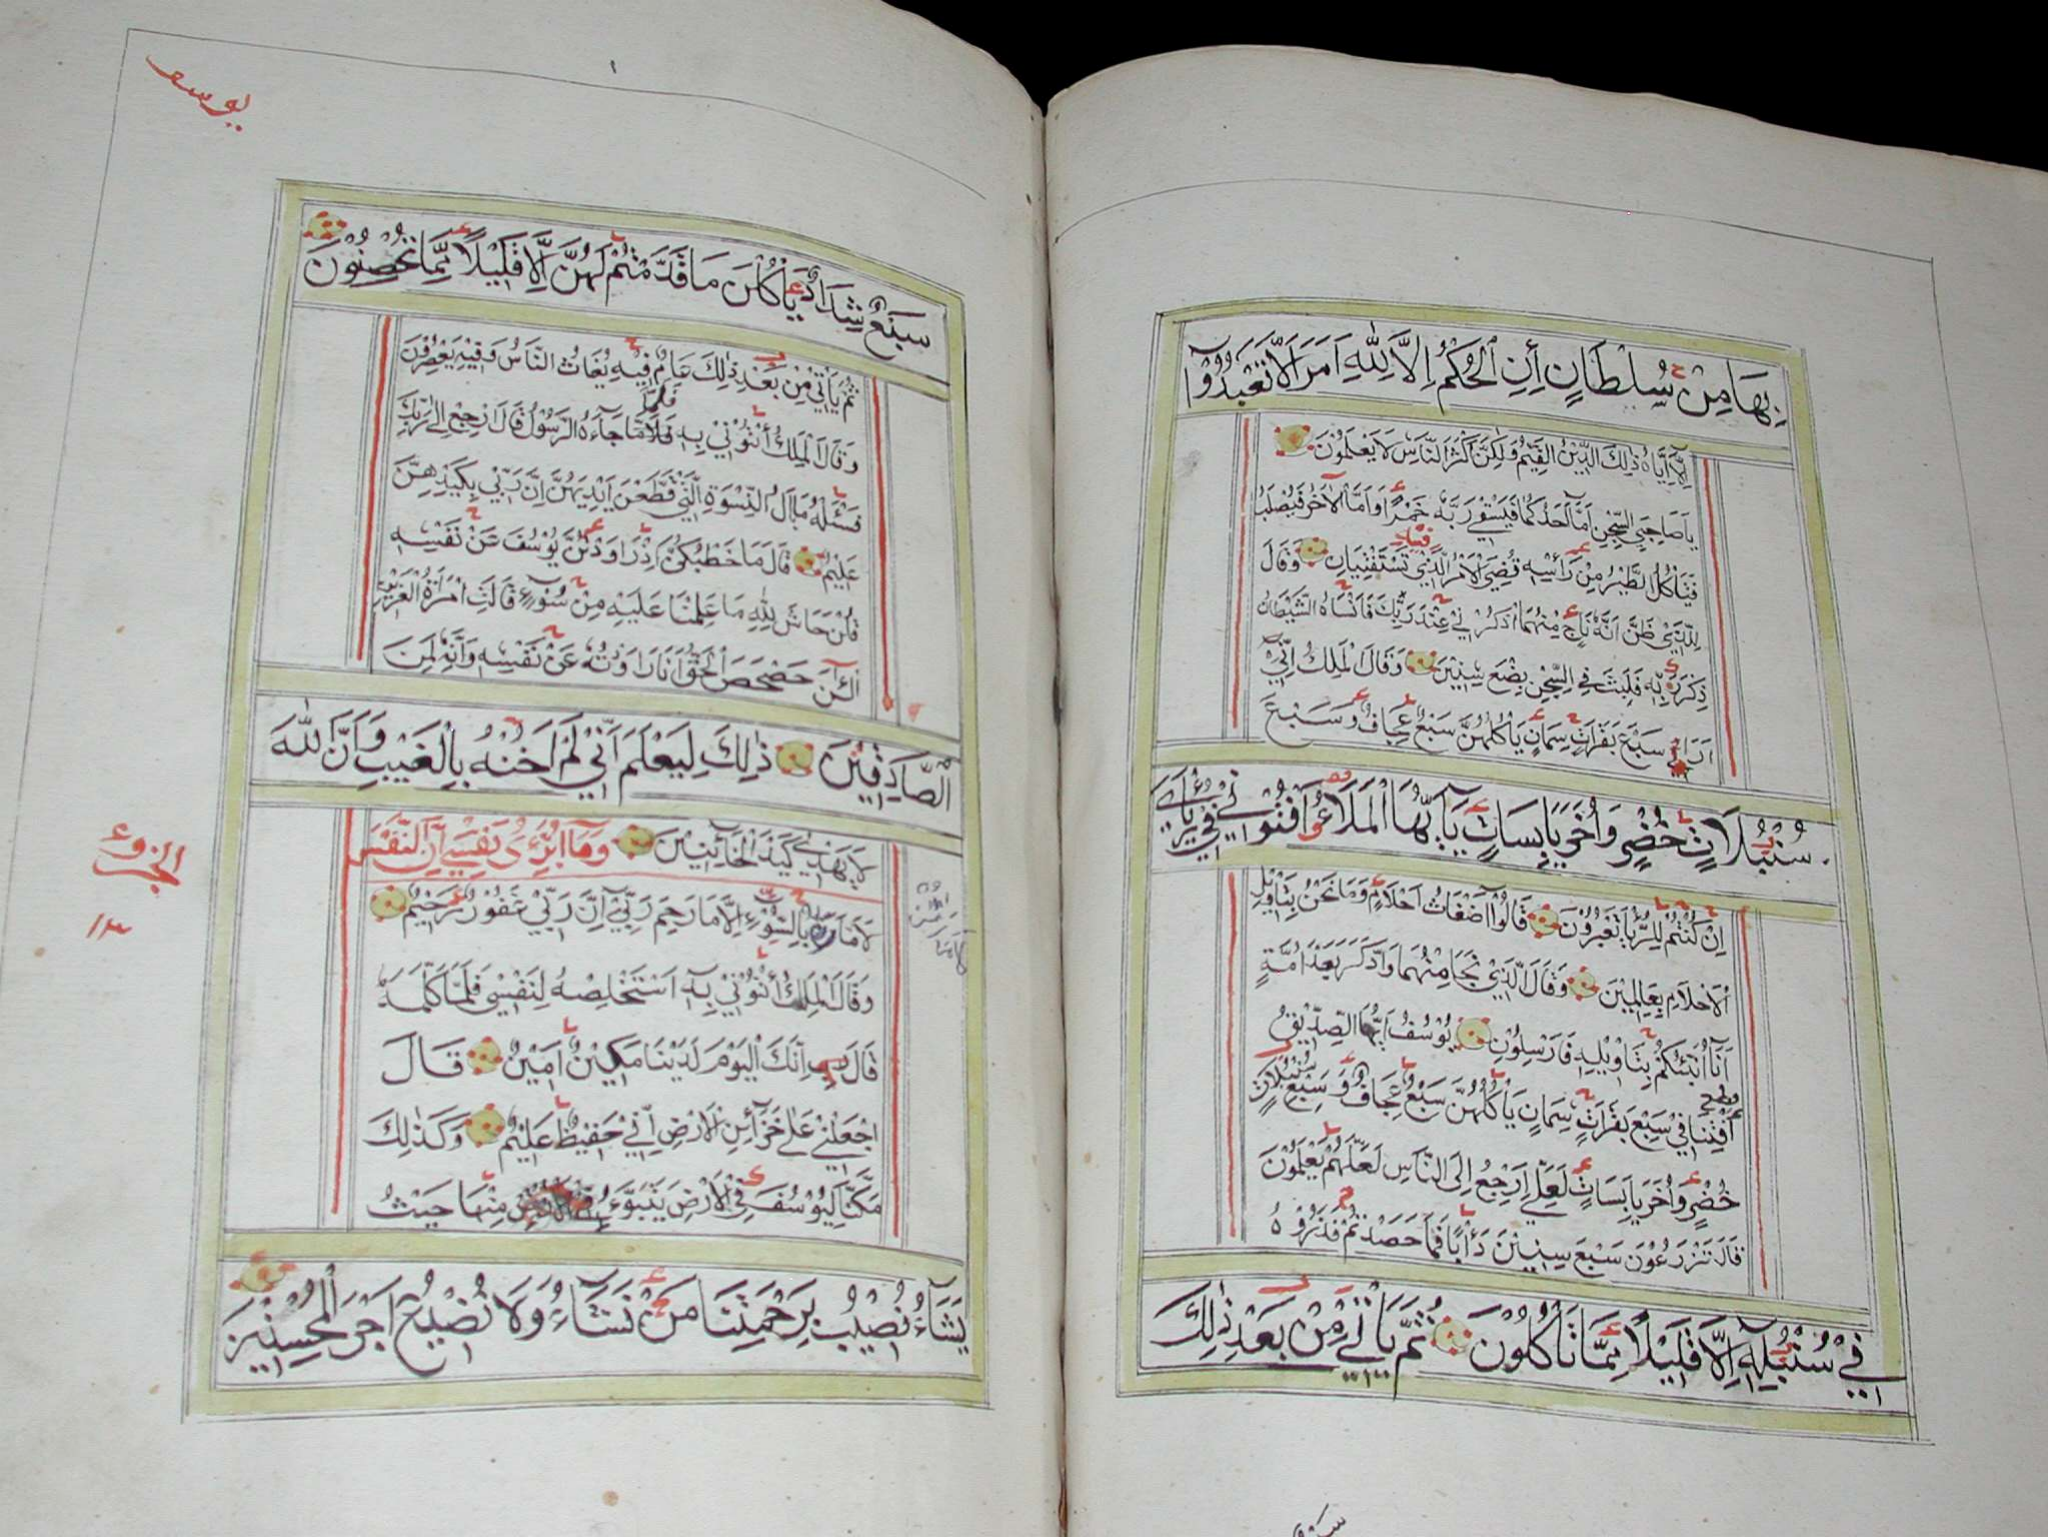 بِهَا مِنْ سُلْطَانٍ أِنِ الْحُكْمُ اِلَّا لِلّٰهِ اَمَرَ اَلَّا تَعْبُدُوْۤا
اِلَّاۤ اِيَّاهُ ذٰلِكَ الدِّيْنُ الْقَيِّمُ وَلٰكِنَّ اَكْثَرَ النَّاسِ لَا يَعْلَمُوْنَ
يَاصَاحِبَيِ السِّجْنِ اَمَّاۤ اَحَدُكُمَا فَيَسْقِيْ رَبَّهٗ خَمْرًا وَاَمَّا الْاٰخَرُ فَيُصْلَبُ
فَتَأْكُلُ الطَّيْرُ مِنْ رَأْسِهٖ قُضِيَ الْاَمْرُ الَّذِيْ فِيْهِ تَسْتَفْتِيَانِ وَقَالَ
لِلَّذِيْ ظَنَّ اَنَّهٗ نَاجٍ مِنْهُمَا اذْكُرْنِيْ عِنْدَ رَبِّكَ فَاَنْسَاهُ الشَّيْطَانُ
ذِكْرَ رَبِّهٖ فَلَبِثَ فِي السِّجْنِ بِضْعَ سِنِيْنَ وَقَالَ الْمَلِكُ اِنِّيْۤ
اَرٰى سَبْعَ بَقَرَاتٍ سِمَانٍ يَأْكُلُهُنَّ سَبْعٌ عِجَافٌ وَسَبْعَ
سُنْبُلَاتٍ خُضْرٍ وَاُخَرَ يَابِسَاتٍ يَاۤ اَيُّهَا الْمَلَاُ اَفْتُوْنِيْ فِيْ رُءْيَايَ
اِنْ كُنْتُمْ لِلرُّءْيَا تَعْبُرُوْنَ قَالُوْۤا اَضْغَاثُ اَحْلَامٍ وَمَا نَحْنُ بِتَاْوِيْلِ
الْاَحْلَامِ بِعَالِمِيْنَ وَقَالَ الَّذِيْ نَجَا مِنْهُمَا وَادَّكَرَ بَعْدَ اُمَّةٍ
اَنَا اُنَبِّئُكُمْ بِتَاْوِيْلِهٖ فَاَرْسِلُوْنِ يُوْسُفُ اَيُّهَا الصِّدِّيْقُ
اَفْتِنَا فِيْ سَبْعِ بَقَرَاتٍ سِمَانٍ يَأْكُلُهُنَّ سَبْعٌ عِجَافٌ وَسَبْعِ سُنْبُلَاتٍ
خُضْرٍ وَاُخَرَ يَابِسَاتٍ لَعَلِّيْۤ اَرْجِعُ اِلَى النَّاسِ لَعَلَّهُمْ يَعْلَمُوْنَ
قَالَ تَزْرَعُوْنَ سَبْعَ سِنِيْنَ دَأْبًا فَمَا حَصَدْتُمْ فَذَرُوْهُ
فِيْ سُنْبُلِهٖۤ اِلَّا قَلِيْلًا مِمَّا تَأْكُلُوْنَ ثُمَّ يَأْتِيْ مِنْ بَعْدِ ذٰلِكَ
يوسف
سَبْعٌ شِدَادٌ يَأْكُلْنَ مَا قَدَّمْتُمْ لَهُنَّ اِلَّا قَلِيْلًا مِمَّا تُحْصِنُوْنَ
ثُمَّ يَأْتِيْ مِنْ بَعْدِ ذٰلِكَ عَامٌ فِيْهِ يُغَاثُ النَّاسُ وَفِيْهِ يَعْصِرُوْنَ
وَقَالَ الْمَلِكُ أْتُوْنِيْ بِهٖ فَلَمَّا جَآءَهُ الرَّسُوْلُ قَالَ ارْجِعْ اِلٰى رَبِّكَ
فَسْئَلْهُ مَا بَالُ النِّسْوَةِ الّٰتِيْ قَطَّعْنَ اَيْدِيَهُنَّ اِنَّ رَبِّيْ بِكَيْدِهِنَّ
عَلِيْمٌ قَالَ مَا خَطْبُكُنَّ اِذْ رَاوَدْتُنَّ يُوْسُفَ عَنْ نَفْسِهٖ
قُلْنَ حَاشَ لِلّٰهِ مَا عَلِمْنَا عَلَيْهِ مِنْ سُوْۤءٍ قَالَتِ امْرَاَةُ الْعَزِيْزِ
الْئٰنَ حَصْحَصَ الْحَقُّ اَنَا رَاوَدْتُهٗ عَنْ نَفْسِهٖ وَاِنَّهٗ لَمِنَ
الصَّادِقِيْنَ ذٰلِكَ لِيَعْلَمَ اَنِّيْ لَمْ اَخُنْهُ بِالْغَيْبِ وَاَنَّ اللّٰهَ
لَا يَهْدِيْ كَيْدَ الْخَاۤئِنِيْنَ وَمَاۤ اُبَرِّئُ نَفْسِيْۤ اِنَّ النَّفْسَ
لَاَمَّارَةٌ بِالسُّوْۤءِ اِلَّا مَا رَحِمَ رَبِّيْۤ اِنَّ رَبِّيْ غَفُوْرٌ رَحِيْمٌ
وَقَالَ الْمَلِكُ أْتُوْنِيْ بِهٖۤ اَسْتَخْلِصْهُ لِنَفْسِيْ فَلَمَّا كَلَّمَهٗ
قَالَ اِنَّكَ الْيَوْمَ لَدَيْنَا مَكِيْنٌ اَمِيْنٌ قَالَ
اجْعَلْنِيْ عَلٰى خَزَآئِنِ الْاَرْضِ اِنِّيْ حَفِيْظٌ عَلِيْمٌ وَكَذٰلِكَ
مَكَّنَّا لِيُوْسُفَ فِي الْاَرْضِ يَتَبَوَّءُ مِنْهَا حَيْثُ
يَشَآءُ نُصِيْبُ بِرَحْمَتِنَا مَنْ نَشَآءُ وَلَا نُضِيْعُ اَجْرَ الْمُحْسِنِيْنَ
الجزؤ
١٣